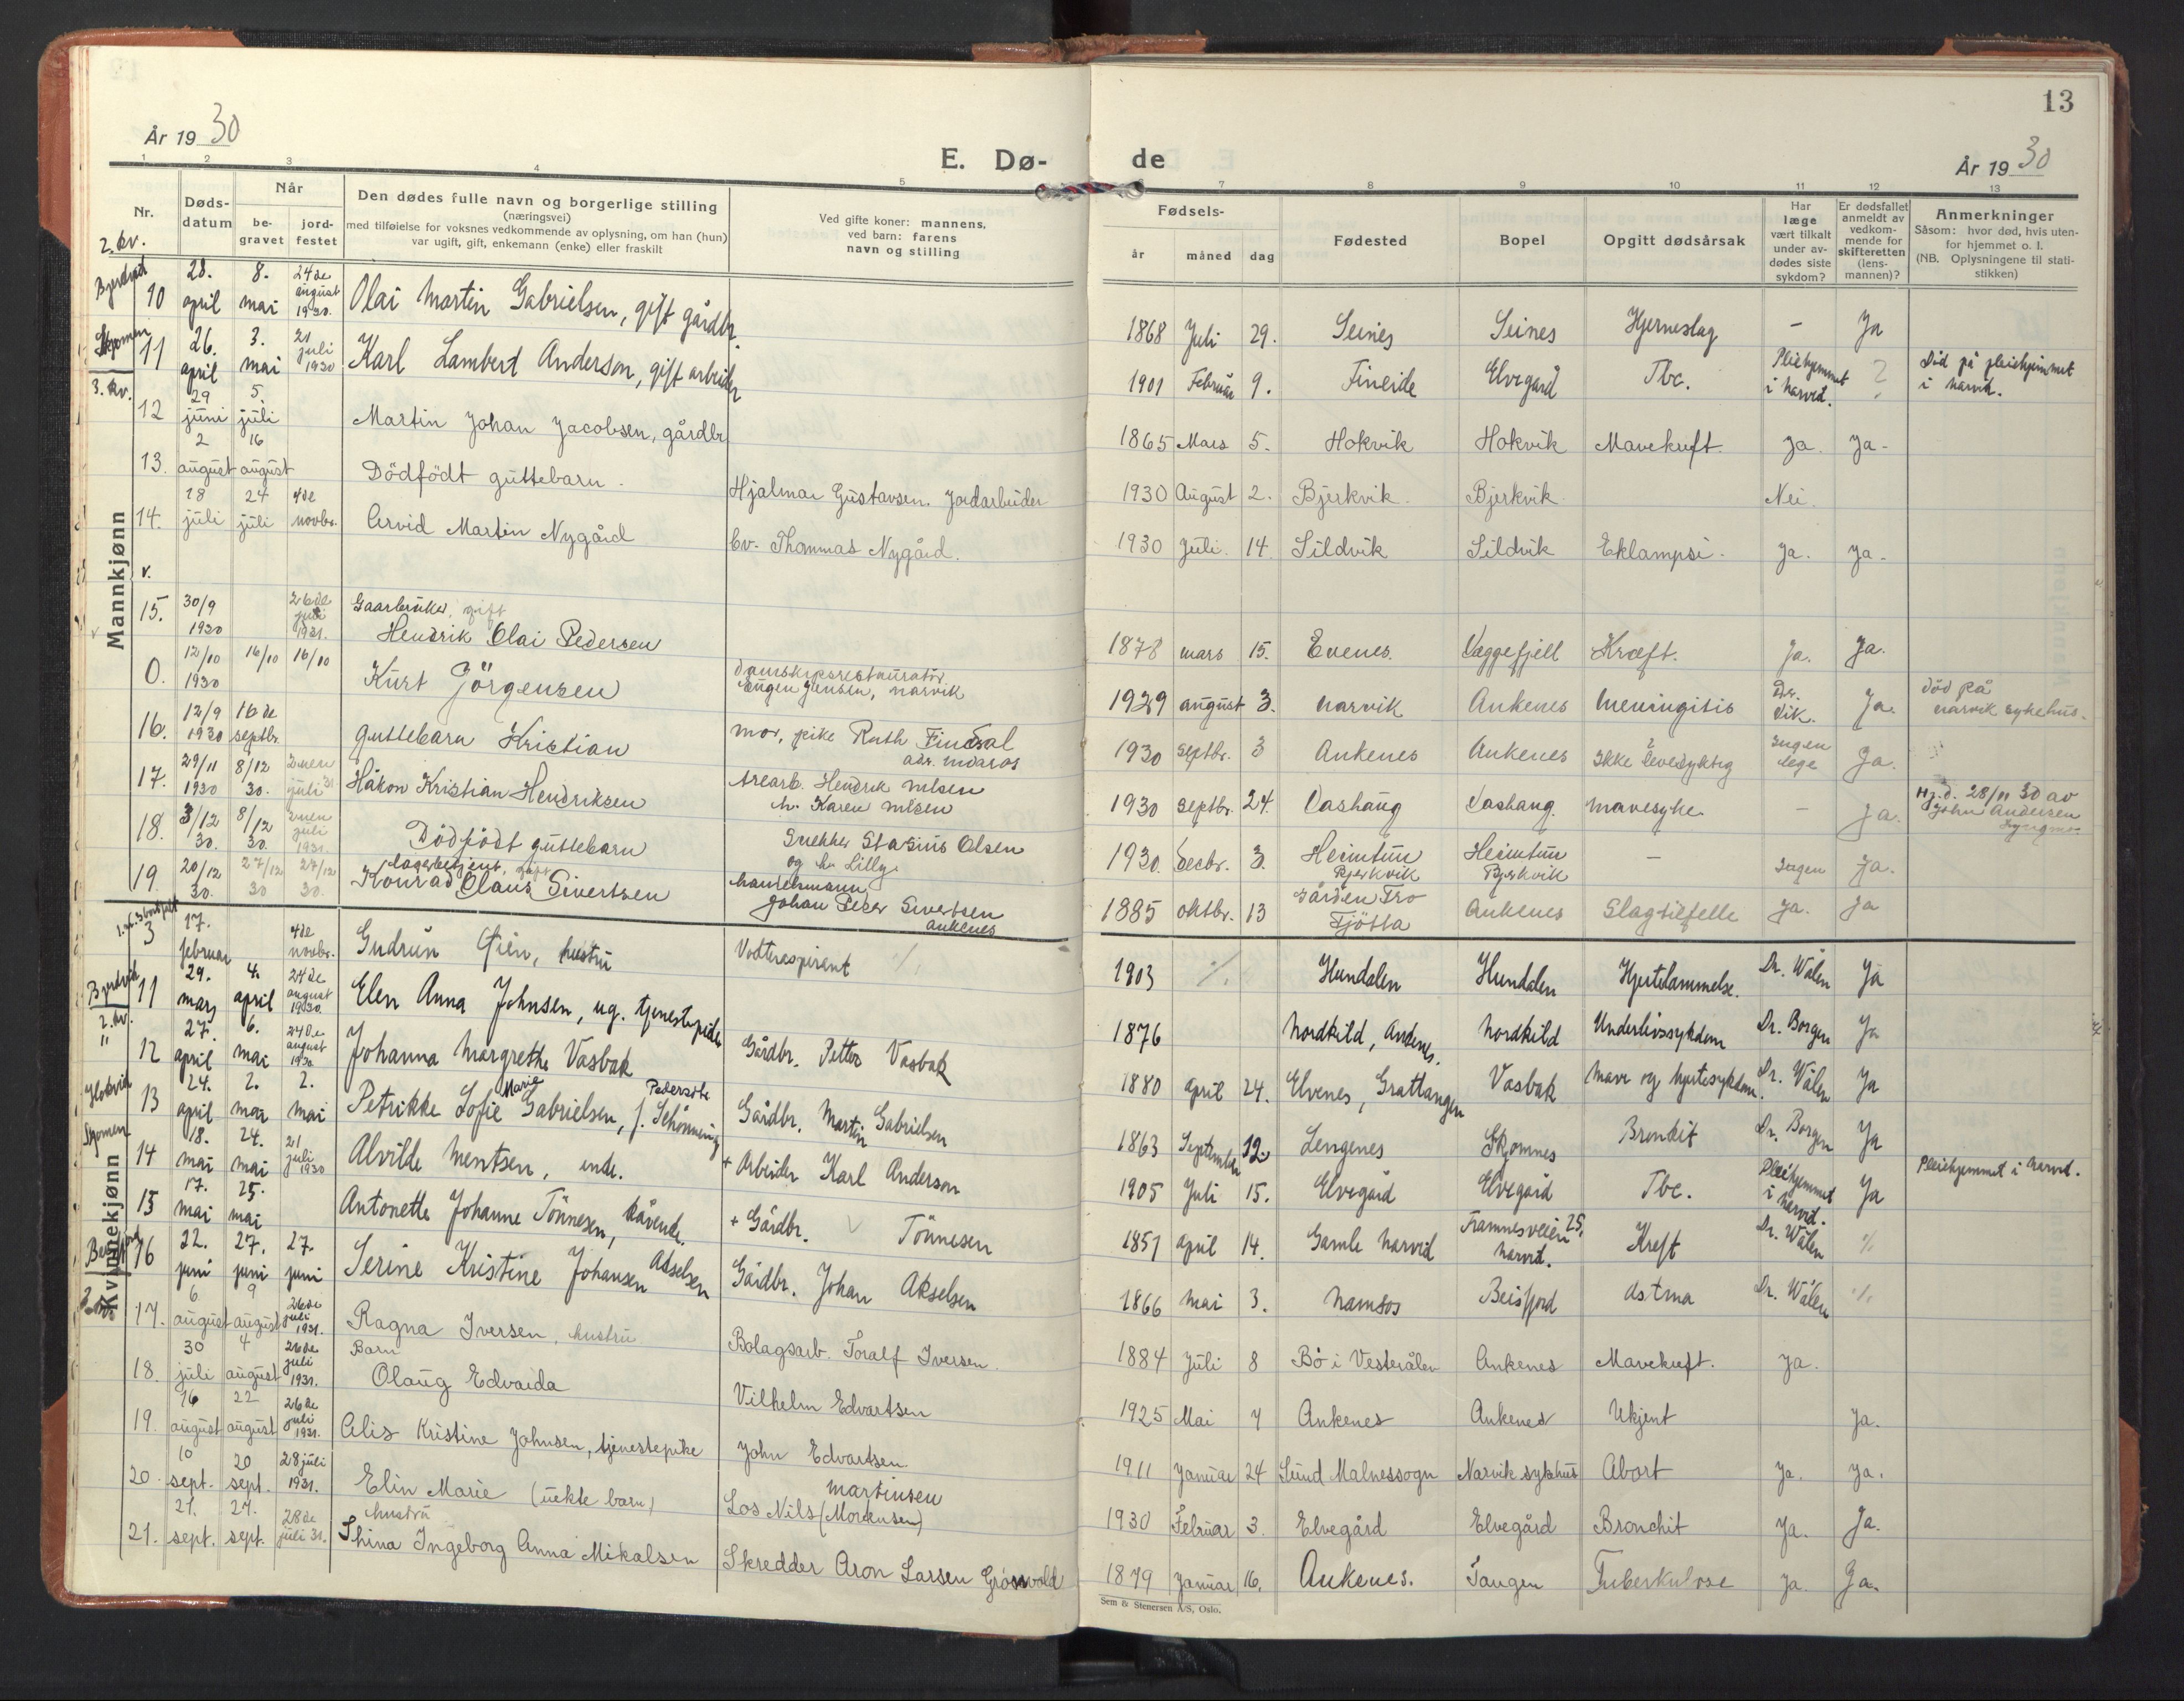 13
År 1930
E. Dø-
de
År 1930
1 2 3 4 5
7 8 9 10 11 12 13
Nr.
Døds-
datum
Når
be-
gravet
jord-
festet
Den dødes fulle navn og borgerlige stilling
(næringsvei)
med tilføielse for voksnes vedkommende av oplysning, om han (hun)
var ugift, gift, enkemann (enke) eller fraskilt
Ved gifte koner: mannens,
ved barn: farens
navn og stilling
Fødsels-
år måned dag
Fødested
Bopel
Opgitt dødsårsak
Har
læge
vært tilkalt
under av-
dødes siste
sykdom?
Er dødsfallet
anmeldt av
vedkom-
mende for
skifteretten
(lens-
mannen)?
Anmerkninger
Såsom: hvor død, hvis uten-
for hjemmet o. l.
(NB. Oplysningene til stati-
stikken)
2. kv.
Mannkjønn
10 28. april 8. mai 24de august 1930. Olai Martin Gabrielsen, gift gårdbr. 1868 Juli 29. Seines Seines Hjerneslag - Ja
Skjomen 11 26. april 3. mai 21 juli 1930 Karl Lambert Anderson, gift arbeider 1901 Februar 9. Fineide Elvegård Tbc. Pleiehjemmet i Narvik. ? Död på pleiehjemmet i Narvik.
3. kv.
12 29 juni 5. juli Martin Johan Jacobsen, gårdbr 1865 Mars 5. Hokvik Hokvik Mavekreft. Ja. Ja-
13. 2 august 16 august Dödfödt guttebarn. Hjalmar Gustavsen. Jordarbeider 1930 August 2. Bjerkvik. Bjerkvik Nei.
14. 18 juli 24 juli 4de novbr. Arvid Martin Nygård Thommas Nygård. 1930 Juli. 14. Sildvik Sildvik Eklampsi. Ja. Ja.
15. 30/9 1930 26de juli 1931. Gaarbruker, gift
Hendrik Olai Pedersen 1878 mars 15. Evenes. Vaggefjell Kræft. Ja. Ja.
0. 12/10 1930 16/10 16/10 Kurt Jörgensen Damskipsrestauratör
Eugen Jensen, Narvik 1929 august 3. Narvik Ankenes Meningitis Dr. Dik. Ja. død på Narvik sykehus.
16. 12/9 1930 16de septbr. Guttebarn Kristian mor, pike Ruth Findsal 1930 septbr. 3 Ankenes Ankenes Ikke levedyktig Ingen lege Ja.
17. 29/11 1930 8/12 30. 2nen juli 31 Håkon Kristian Hendriksen Arearb. Hendrik Nilsen
h. Karen Nilsen 1930 septbr. 24. Vashaug Vashaug. Mavesyke - Ja. Hj.d. 28/11 30 av John Andersen
18. 3/12 30. 8/12 30. 2nen juli 1931. Dödfödt guttebarn Snekker Stasius Olsen
og h. Lilly. 1930. Decbr. 3. Heimtun Bjerkvik Heimtun Bjerkvik - Ingen Ja.
19. 20/12 30. 27/12 30 27/12 30. Lagerbetjent, gift
Konrad Claus Sivertsen Handelsmann
Johan Peter Sivertsen
Ankenes 1885 oktbr. 13 Gården Fro Tjötta Ankenes Slagtilfelle Ja. Ja
Kvinnekjønn
3 17. februar 4de novbr. Gudrun Øien, hustru Vokteraspirant 1903 ./. Hundalen Hundalen Hjertelammelse. Dr. Wålen Ja
11 29. mars 4. april 24de august 1930. Elen Anna Johnsen, ug. tjenestepike 1876 Nordkild, Andenes. Nordkild Underlivssykdom Dr. Borgen Ja
2. kv.
12 27. april 6. mai 24de august 1930 Johanna Margrethe Vasbak Gårdbr. Petter Vasbak 1880 april 24. Elvenes, Grattangen Vasbak Mave og hjertesykdom. Dr. Wålen Ja
13 24. april 2. mai 2. mai Petrikke Sofie Marie Gabrielsen, f. Schönning Gårdbr. Martin Gabrielsen 1863 September 12. Lengenes Skomnes Bronkit Dr. Borgen Ja
Skjomen 14 18. mai 24. mai 21 juli 1930 Alvilde Mentsen, enke. + Arbeider Karl Anderson 1905 Juli 15. Elvegård Elvegård Tbc. Pleiehjemmet i Narvik. Ja Pleiehjemmet i Narvik.
15 17. mai 25. mai Antonette Johanne Tönnesen, kårenke. + Gårdbr. Tönnesen 1851 april 14. Gamle Narvik Framnesveien 25, Narvik. Kreft Dr. Wålen ./.
16 22. juni 27. juni 27. juni Serine Kristine Johansen Akselsen Gårdbr. Johan Akselsen 1866 mai 3. Namsos Beisfjord Astma Dr. Wålen ./.
17. 6 august 9 august 26de juli 1931. Ragna Iversen, hustru Bolagsarb. Toralf Iversen. 1884 Juli 8 Bö i Vesterålen Ankenes Mavekreft. Ja.
18. 30 juli 4 august 26de juli 1931. Barn
Olaug Edvarda Vilhelm Edvartsen 1925 Mai 7 Ankenes Ankenes Ukjent Ja.
19. 16 august 22 august 26de juli 1931. Alis Kristine Johnsen, tjenestepike John Edvartsen. 1911 Januar 24 Sund Malnessogn Narvik sykehus Abort Ja. Ja.
20. 10 sept. 20 sept. 28 juli 1931. Elin Marie (uekte barn) Martinsen
Los Nils (Mortensen) 1930 Februar 3. Elvegård Elvegård Bronchit Ja. Ja.
21. 21. sept. 27. sept. 28de juli 31. hustru
Thina Ingeborg Anna Mikalsen Skredder Aron Larsen Grönvold 1879 Januar 16. Ankenes. Tangen Tuberkulose Ja. Ja.
Sem & Stenersen A/S, Oslo.